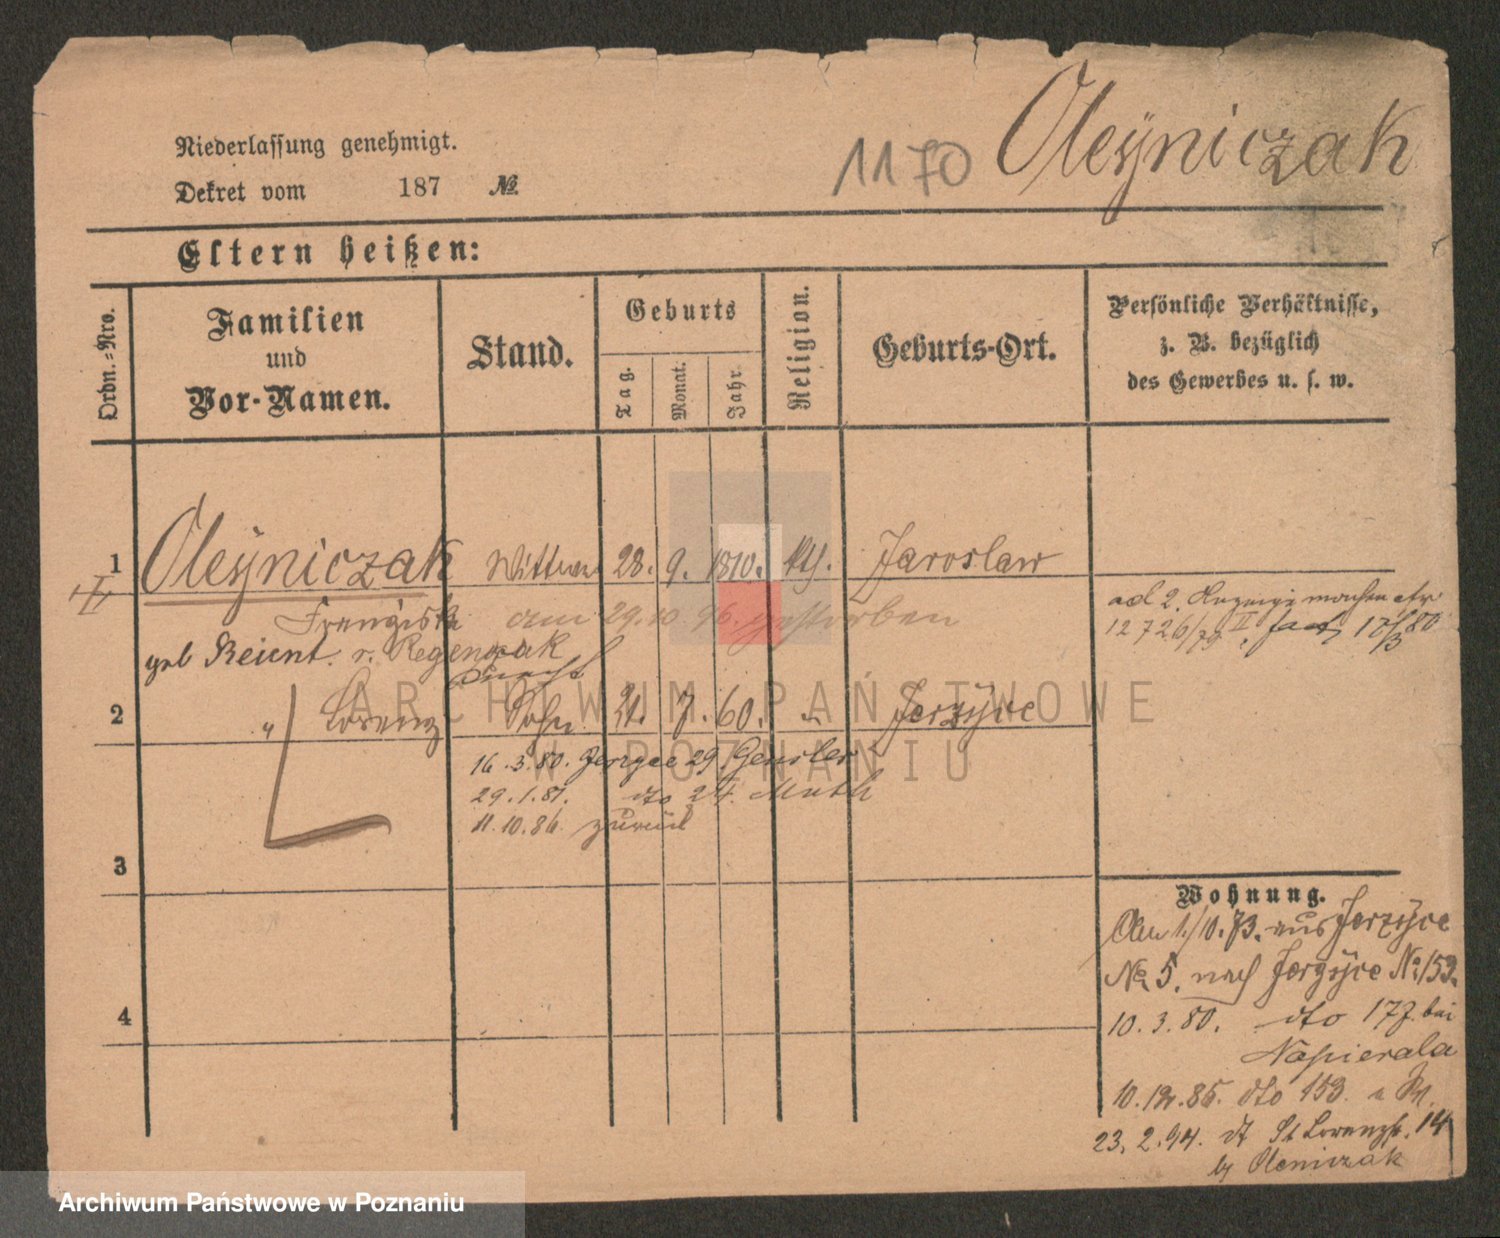 Niederlassung genehmigt.
Dekret vom 187 №
1170 Olejniczak
Eltern heißen:
Ordn.=Nro.
Familien
und
Vor-Namen.
Stand.
Geburts
Tag.
Monat.
Jahr.
Religion.
Geburts-Ort.
Persönliche Verhältnisse,
z. B. bezüglich
des Gewerbes u. s. w.
1 Oleÿniczak Wittwe 28. 9. 1810. kth. Jaroslaw
Franziska am 29.10.96. gestorben
geb Reient. r. Regenzak
Knecht
2 " Lorenz Sohn 21. 7. 60. " Jerzÿce
16.3.80. Jerzyce 29 Gensler
29.1.81. dto 24. Muth
11.10.86. zurück
3
4
ad 2.
12726/79 II 17/3 80
Wohnung.
Am 1./10.73. aus Jerzÿce
No 5. nach Jerzÿce No 153.
10.3.80. dto 177. bei
Napierala
10.12.85. dto 153.
23.2.94. dt St Lorenzstr. 14
by Oleniczak
ARCHIWUM PAŃSTWOWE
W POZNANIU
Archiwum Państwowe w Poznaniu